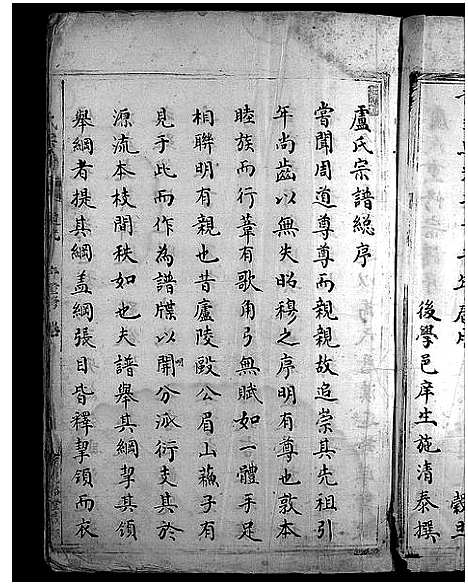 後學邑庠生施清泰撰
盧氏宗譜総序
嘗聞周道尊尊而親親故追崇其先祖引
年尚齒以無失昭穆之序明有尊也敦本
睦族而行葦有歌角弓無賦如一體手足
相聯明有親也昔廬陵歐公眉山蘓子有
見乎此而作為譜牒以開分派衍支其於
源流本枝間秩如也夫譜舉其綱挈其領
舉綱者提其綱盖綱張目皆釋挈領而衣